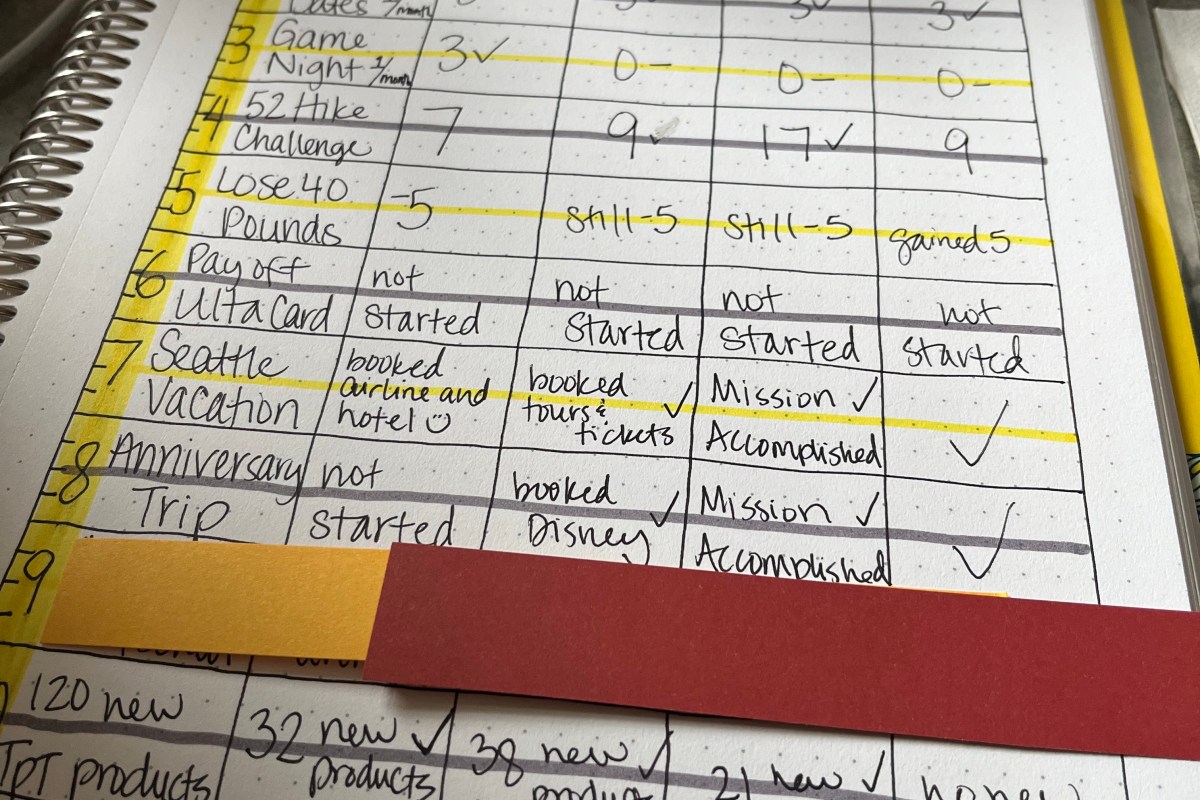 Dates 2/month 3✓ 3✓
3 Game Night 1/month 3✓ 0- 0- 0-
4 52 Hike Challenge 7 9✓ 17✓ 9
5 Lose 40 Pounds -5 Still-5 Still-5 gained 5
6 Pay off Ulta Card not started not started not started not started
7 Seattle Vacation booked airline and hotel☺ booked tours & tickets ✓ Mission Accomplished ✓ ✓
8 Anniversary Trip not started booked Disney ✓ Mission Accomplished ✓ ✓
9
120 new TPT products 32 new products ✓ 38 new ✓ 21 new ✓